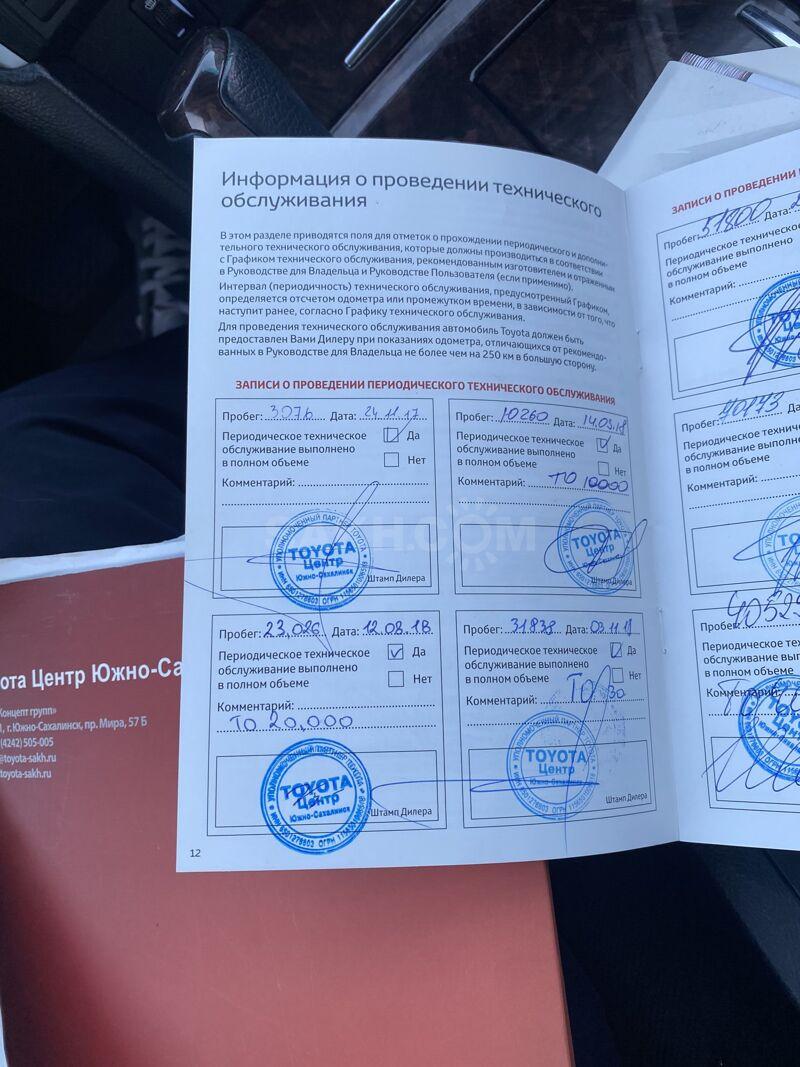 Информация о проведении технического
обслуживания
В этом разделе приводятся поля для отметок о прохождении периодического и дополни-
тельного технического обслуживания, которые должны производиться в соответствии
с Графиком технического обслуживания, рекомендованным изготовителем и отраженным
в Руководстве для Владельца и Руководстве Пользователя (если применимо).
Интервал (периодичность) технического обслуживания, предусмотренный Графиком,
определяется отсчетом одометра или промежутком времени, в зависимости от того, что
наступит ранее, согласно Графику технического обслуживания.
Для проведения технического обслуживания автомобиль Toyota должен быть
предоставлен Вами Дилеру при показаниях одометра, отличающихся от рекомендо-
ванных в Руководстве для Владельца не более чем на 250 км в большую сторону.
ЗАПИСИ О ПРОВЕДЕНИИ ПЕРИОДИЧЕСКОГО ТЕХНИЧЕСКОГО ОБСЛУЖИВАНИЯ
Пробег: 3076 Дата: 24.11.17
Периодическое техническое
обслуживание выполнено
в полном объеме
Да
Нет
Комментарий:
УПОЛНОМОЧЕННЫЙ ПАРТНЕР TOYOTA
TOYOTA
Центр
Южно-Сахалинск
Штамп Дилера
Пробег: 10260 Дата: 14.03.18
Периодическое техническое
обслуживание выполнено
в полном объеме
Да
Нет
Комментарий: ТО 10000
TOYOTA
Центр
Штамп Дилера
Пробег: 23,026 Дата: 12.08.18
Периодическое техническое
обслуживание выполнено
в полном объеме
Да
Нет
Комментарий:
ТО 20,000
УПОЛНОМОЧЕННЫЙ ПАРТНЕР TOYOTA
TOYOTA
Центр
Южно-Сахалинск
Штамп Дилера
Пробег: 31838 Дата: 03.11.18
Периодическое техническое
обслуживание выполнено
в полном объеме
Да
Нет
Комментарий: ТО 30
TOYOTA
Центр
Южно-Сахалинск
Штамп Дилера
12
ЗАПИСИ О ПРОВЕДЕНИИ
Пробег: 51800 Дата:
Периодическое техническое
обслуживание выполнено
в полном объеме
Комментарий:
TOYOTA
Пробег: Да
Периодическое техническое
обслуживание выполнено
в полном объеме
Комментарий:
Пробег:
Периодическое техническое
обслуживание выполнено
в полном объеме
Комментарий:
SAKH.COM
ота Центр Южно-Са
Концепт групп»
1, г.Южно-Сахалинск, пр. Мира, 57 Б
(4242) 505-005
@toyota-sakh.ru
toyota-sakh.ru